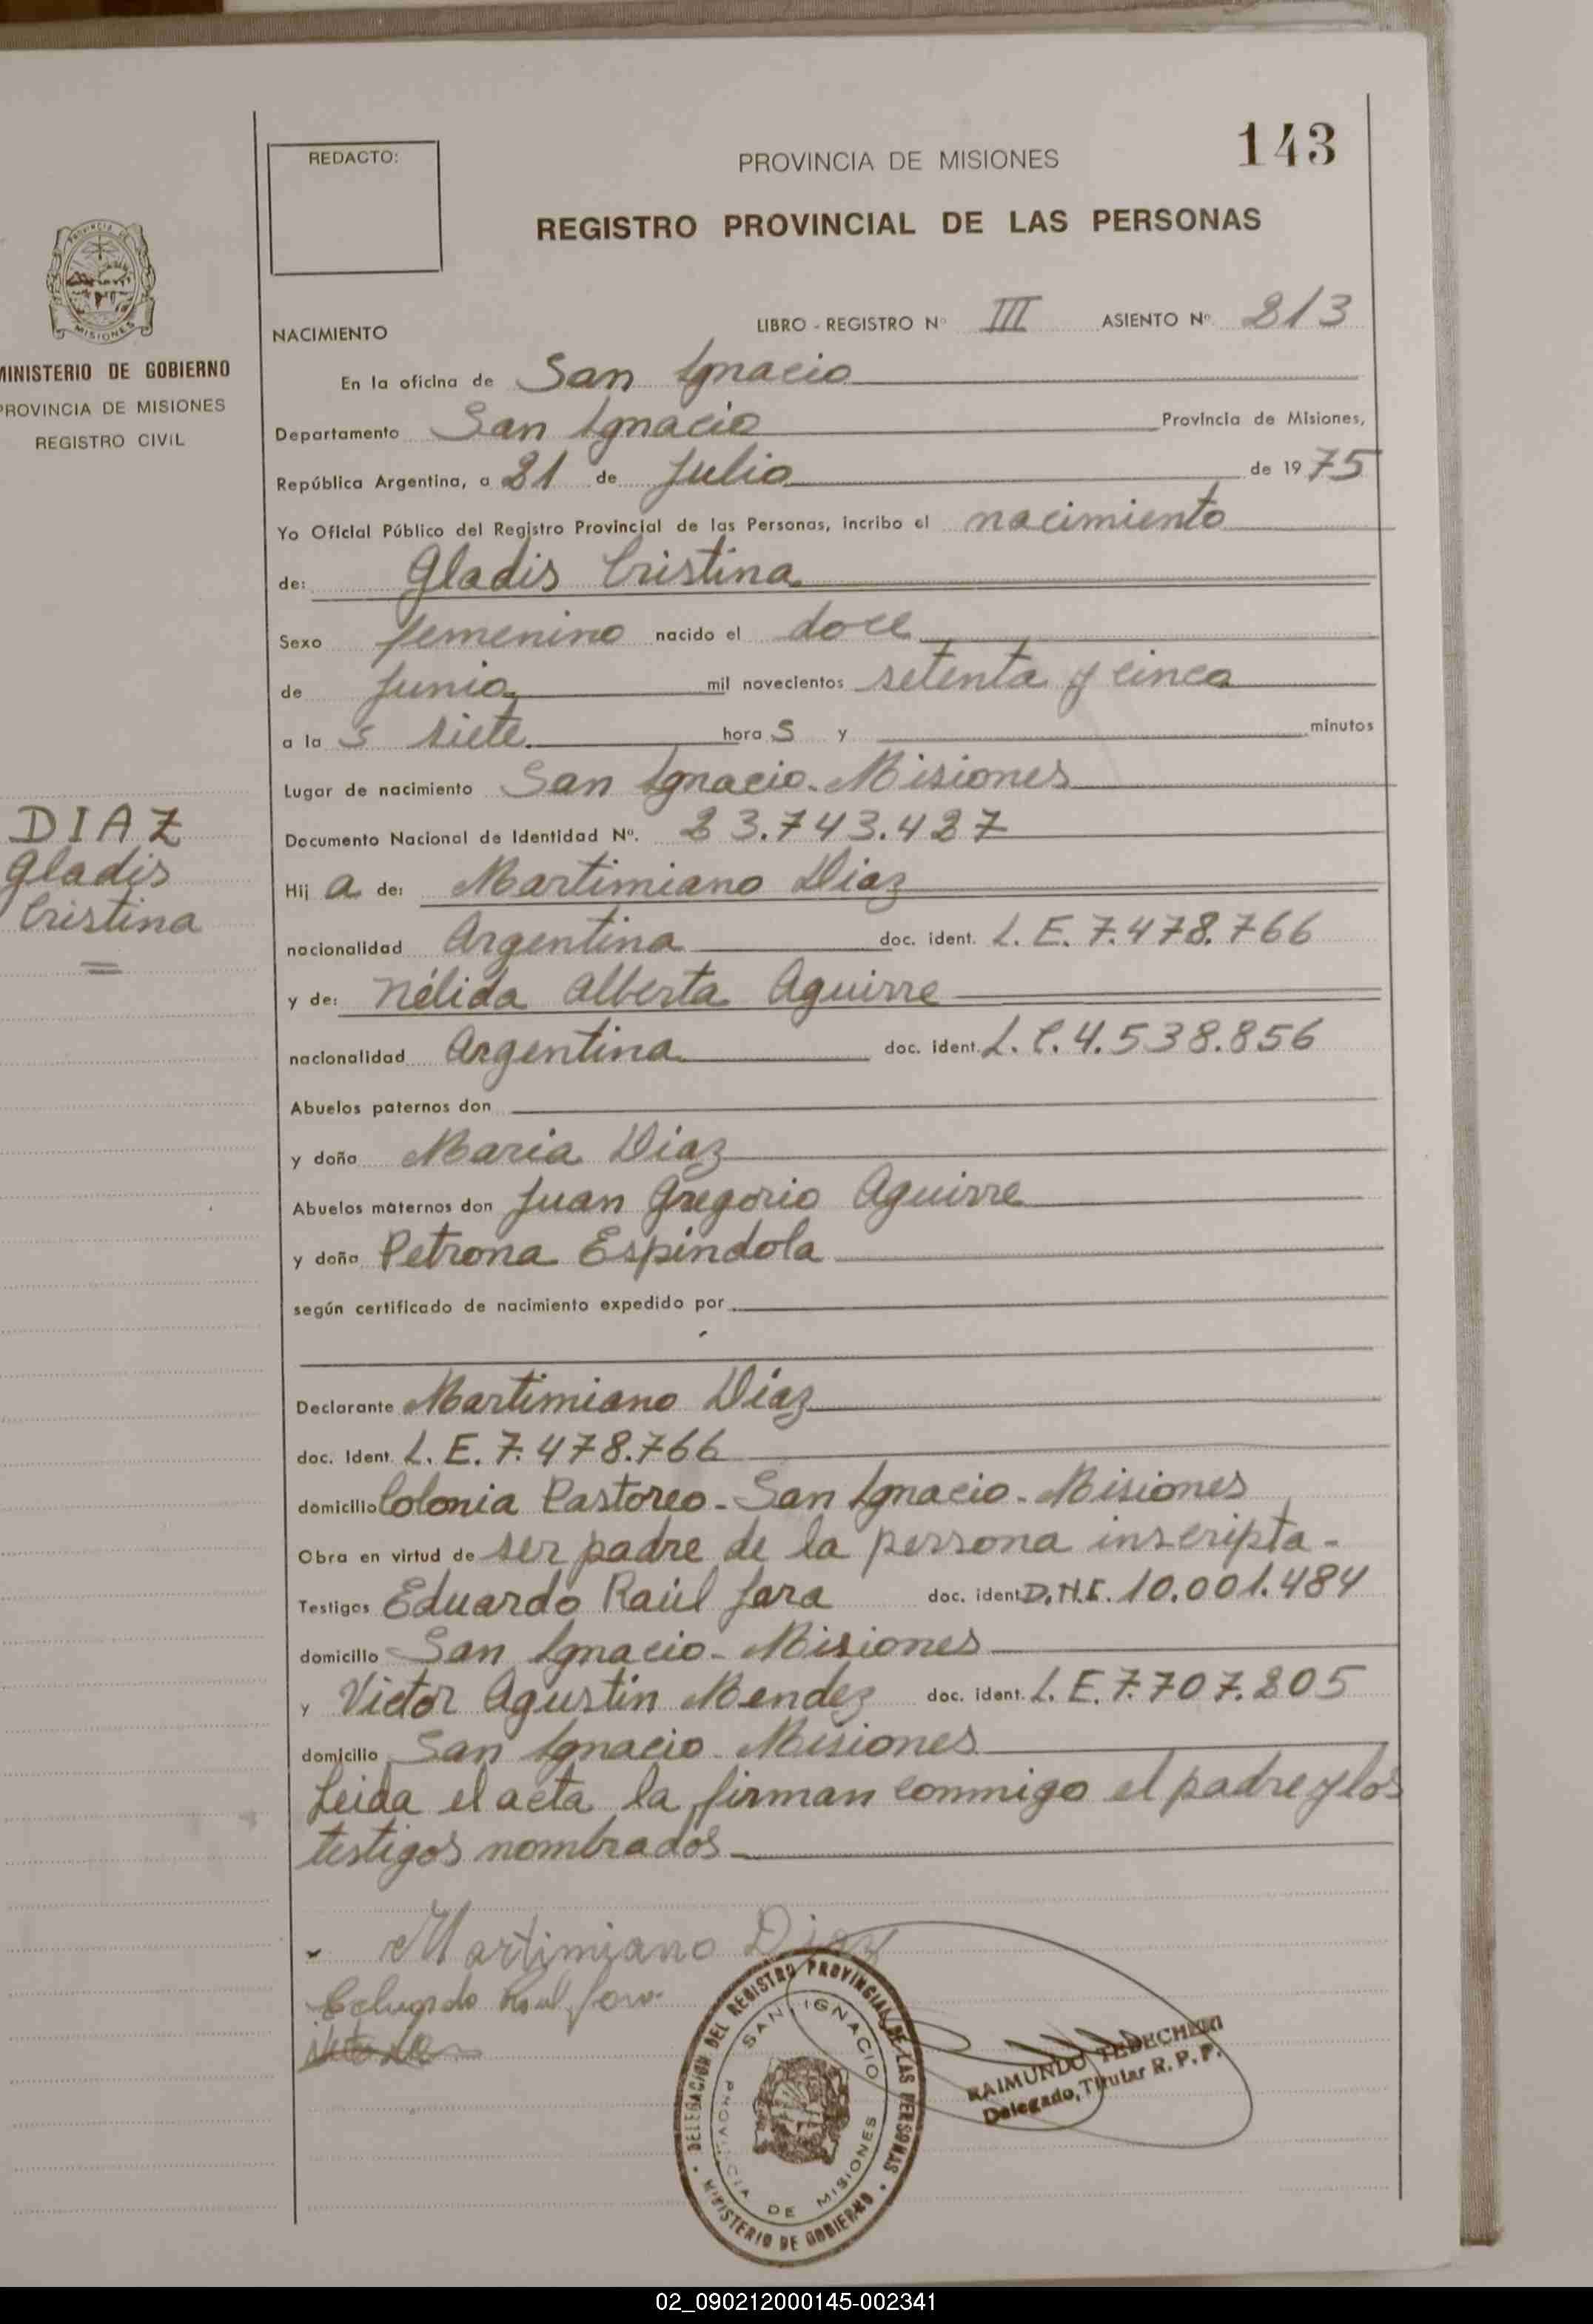 143
REDACTO:
PROVINCIA DE MISIONES
REGISTRO PROVINCIAL DE LAS PERSONAS
PROVINCIA DE
MISIONES
MINISTERIO DE GOBIERNO
PROVINCIA DE MISIONES
REGISTRO CIVIL
NACIMIENTO
LIBRO - REGISTRO Nº III ASIENTO Nº 213
En la oficina de San Ignacio
Departamento San Ignacio Provincia de Misiones,
República Argentina, a 21 de Julio de 1975
Yo Oficial Público del Registro Provincial de las Personas, incribo el nacimiento
de: Gladis Cristina
Sexo femenino nacido el doce
de Junio mil novecientos setenta y cinco
a la s siete hora s y minutos
Lugar de nacimiento San Ignacio. Misiones
Documento Nacional de Identidad Nº. 23.743.427
DIAZ
Gladis
Cristina
Hij a de: Martimiano Diaz
nacionalidad Argentina doc. ident. L. E. 7.478.766
y de: Nélida Alberta Aguirre
nacionalidad Argentina doc. ident. L. C. 4.538.856
Abuelos paternos don
y doña Maria Diaz
Abuelos maternos don Juan Gregorio Aguirre
y doña Petrona Espindola
según certificado de nacimiento expedido por
Declarante Martimiano Diaz
doc. Ident. L. E. 7.478.766
domicilio Colonia Pastoreo - San Ignacio - Misiones
Obra en virtud de ser padre de la persona inscripta -
Testigos Eduardo Raúl Jara doc. ident. D.N.I. 10.001.484
domicilio San Ignacio - Misiones
y Victor Agustin Mendez doc. ident. L. E. 7.707.205
domicilio San Ignacio Misiones
Leida el acta, la firman conmigo el padre y los
testigos nombrados
Martimiano Diaz
Eduardo Raul Jara
DELEGACION DEL REGISTRO PROVINCIAL DE LAS PERSONAS
SAN IGNACIO
PROVINCIA DE MISIONES
MINISTERIO DE GOBIERNO
RAIMUNDO
Delegado, Titular R. P. P.
02_090212000145-002341